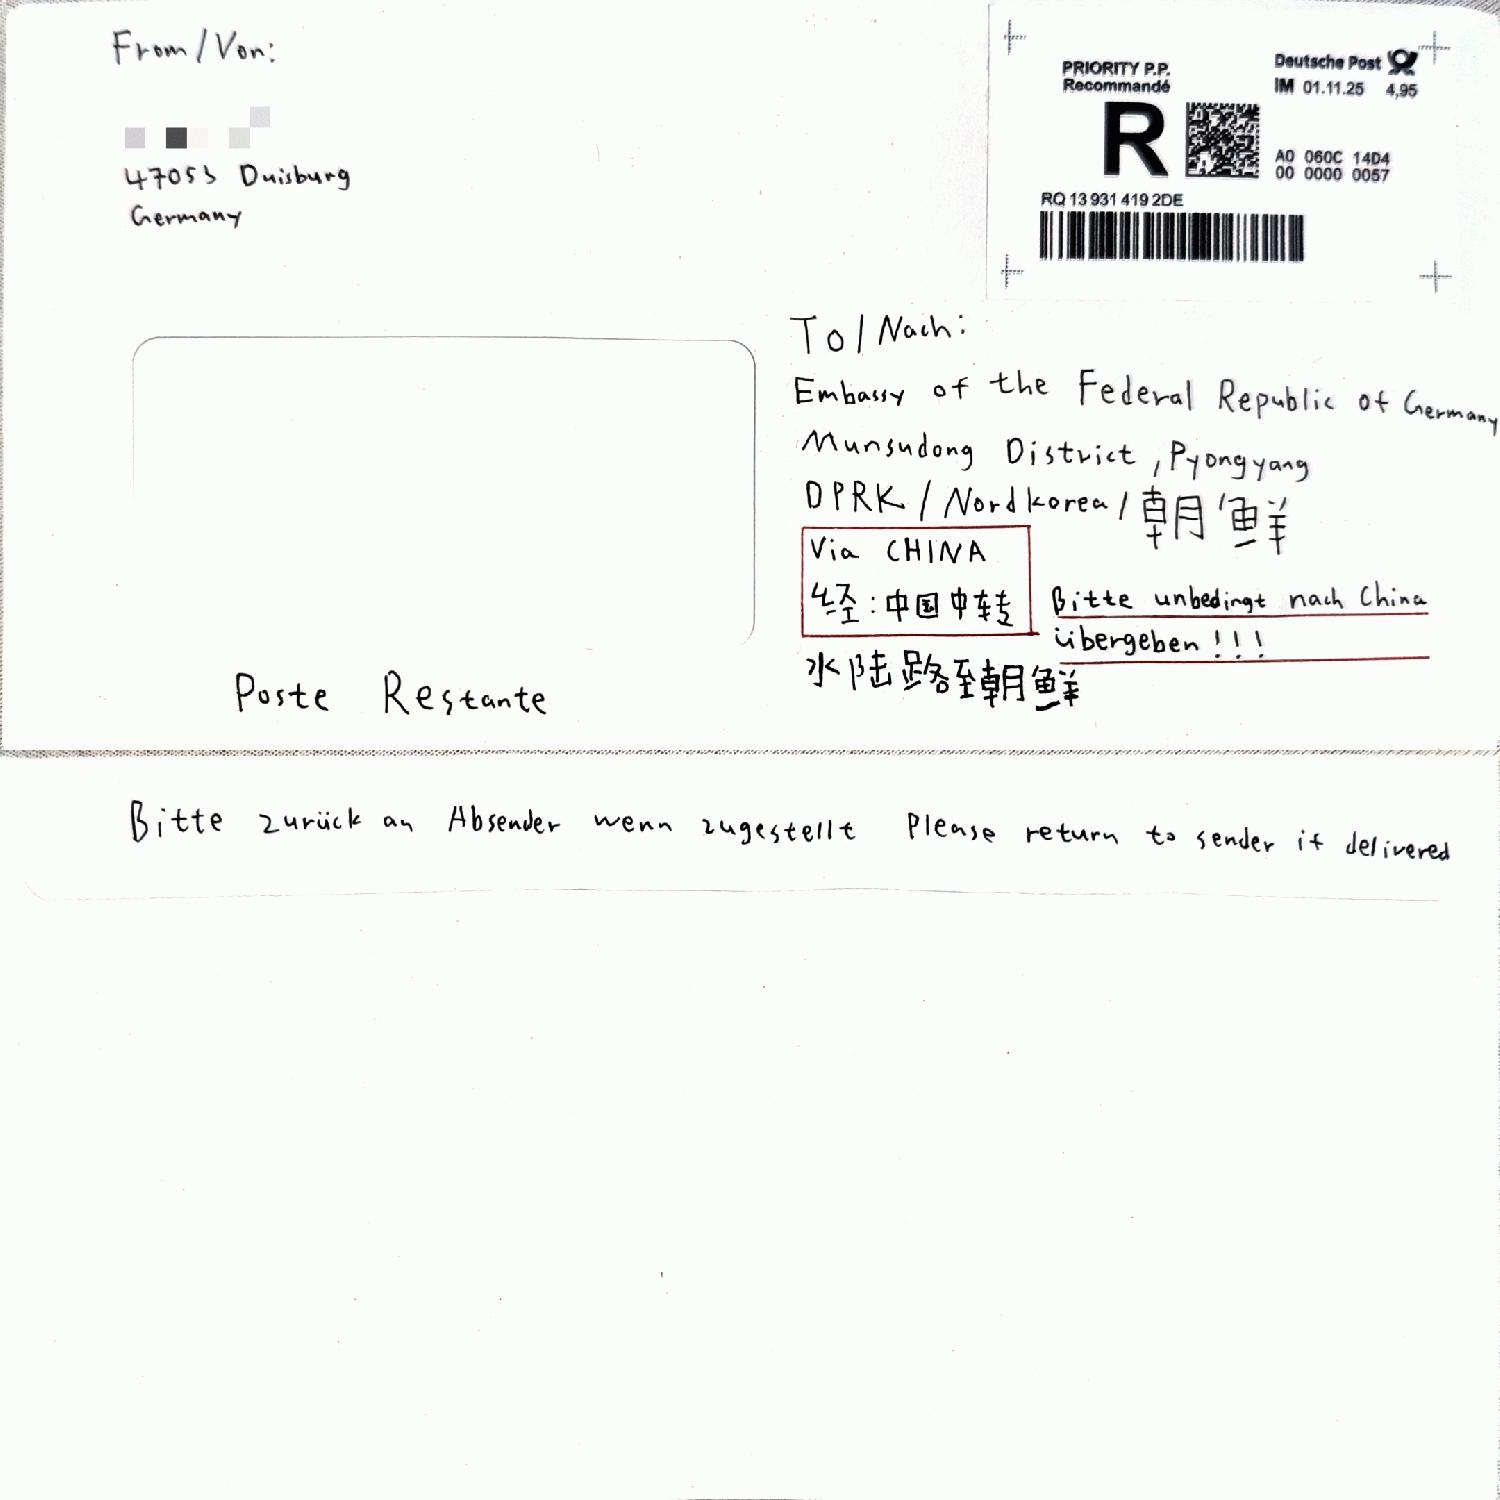 From/Von:
47053 Duisburg
Germany
PRIORITY P.P.
Recommandé
R
Deutsche Post
IM 01.11.25 4,95
A0 060C 14D4
00 0000 0057
RQ 13 931 419 2DE
To/Nach:
Embassy of the Federal Republic of Germany
Munsudong District, Pyongyang
DPRK/Nordkorea/朝鲜
Via CHINA
经:中国中转
Bitte unbedingt nach China
übergeben!!!
水陆路至朝鲜
Poste Restante
Bitte zurück an Absender wenn zugestellt Please return to sender if delivered